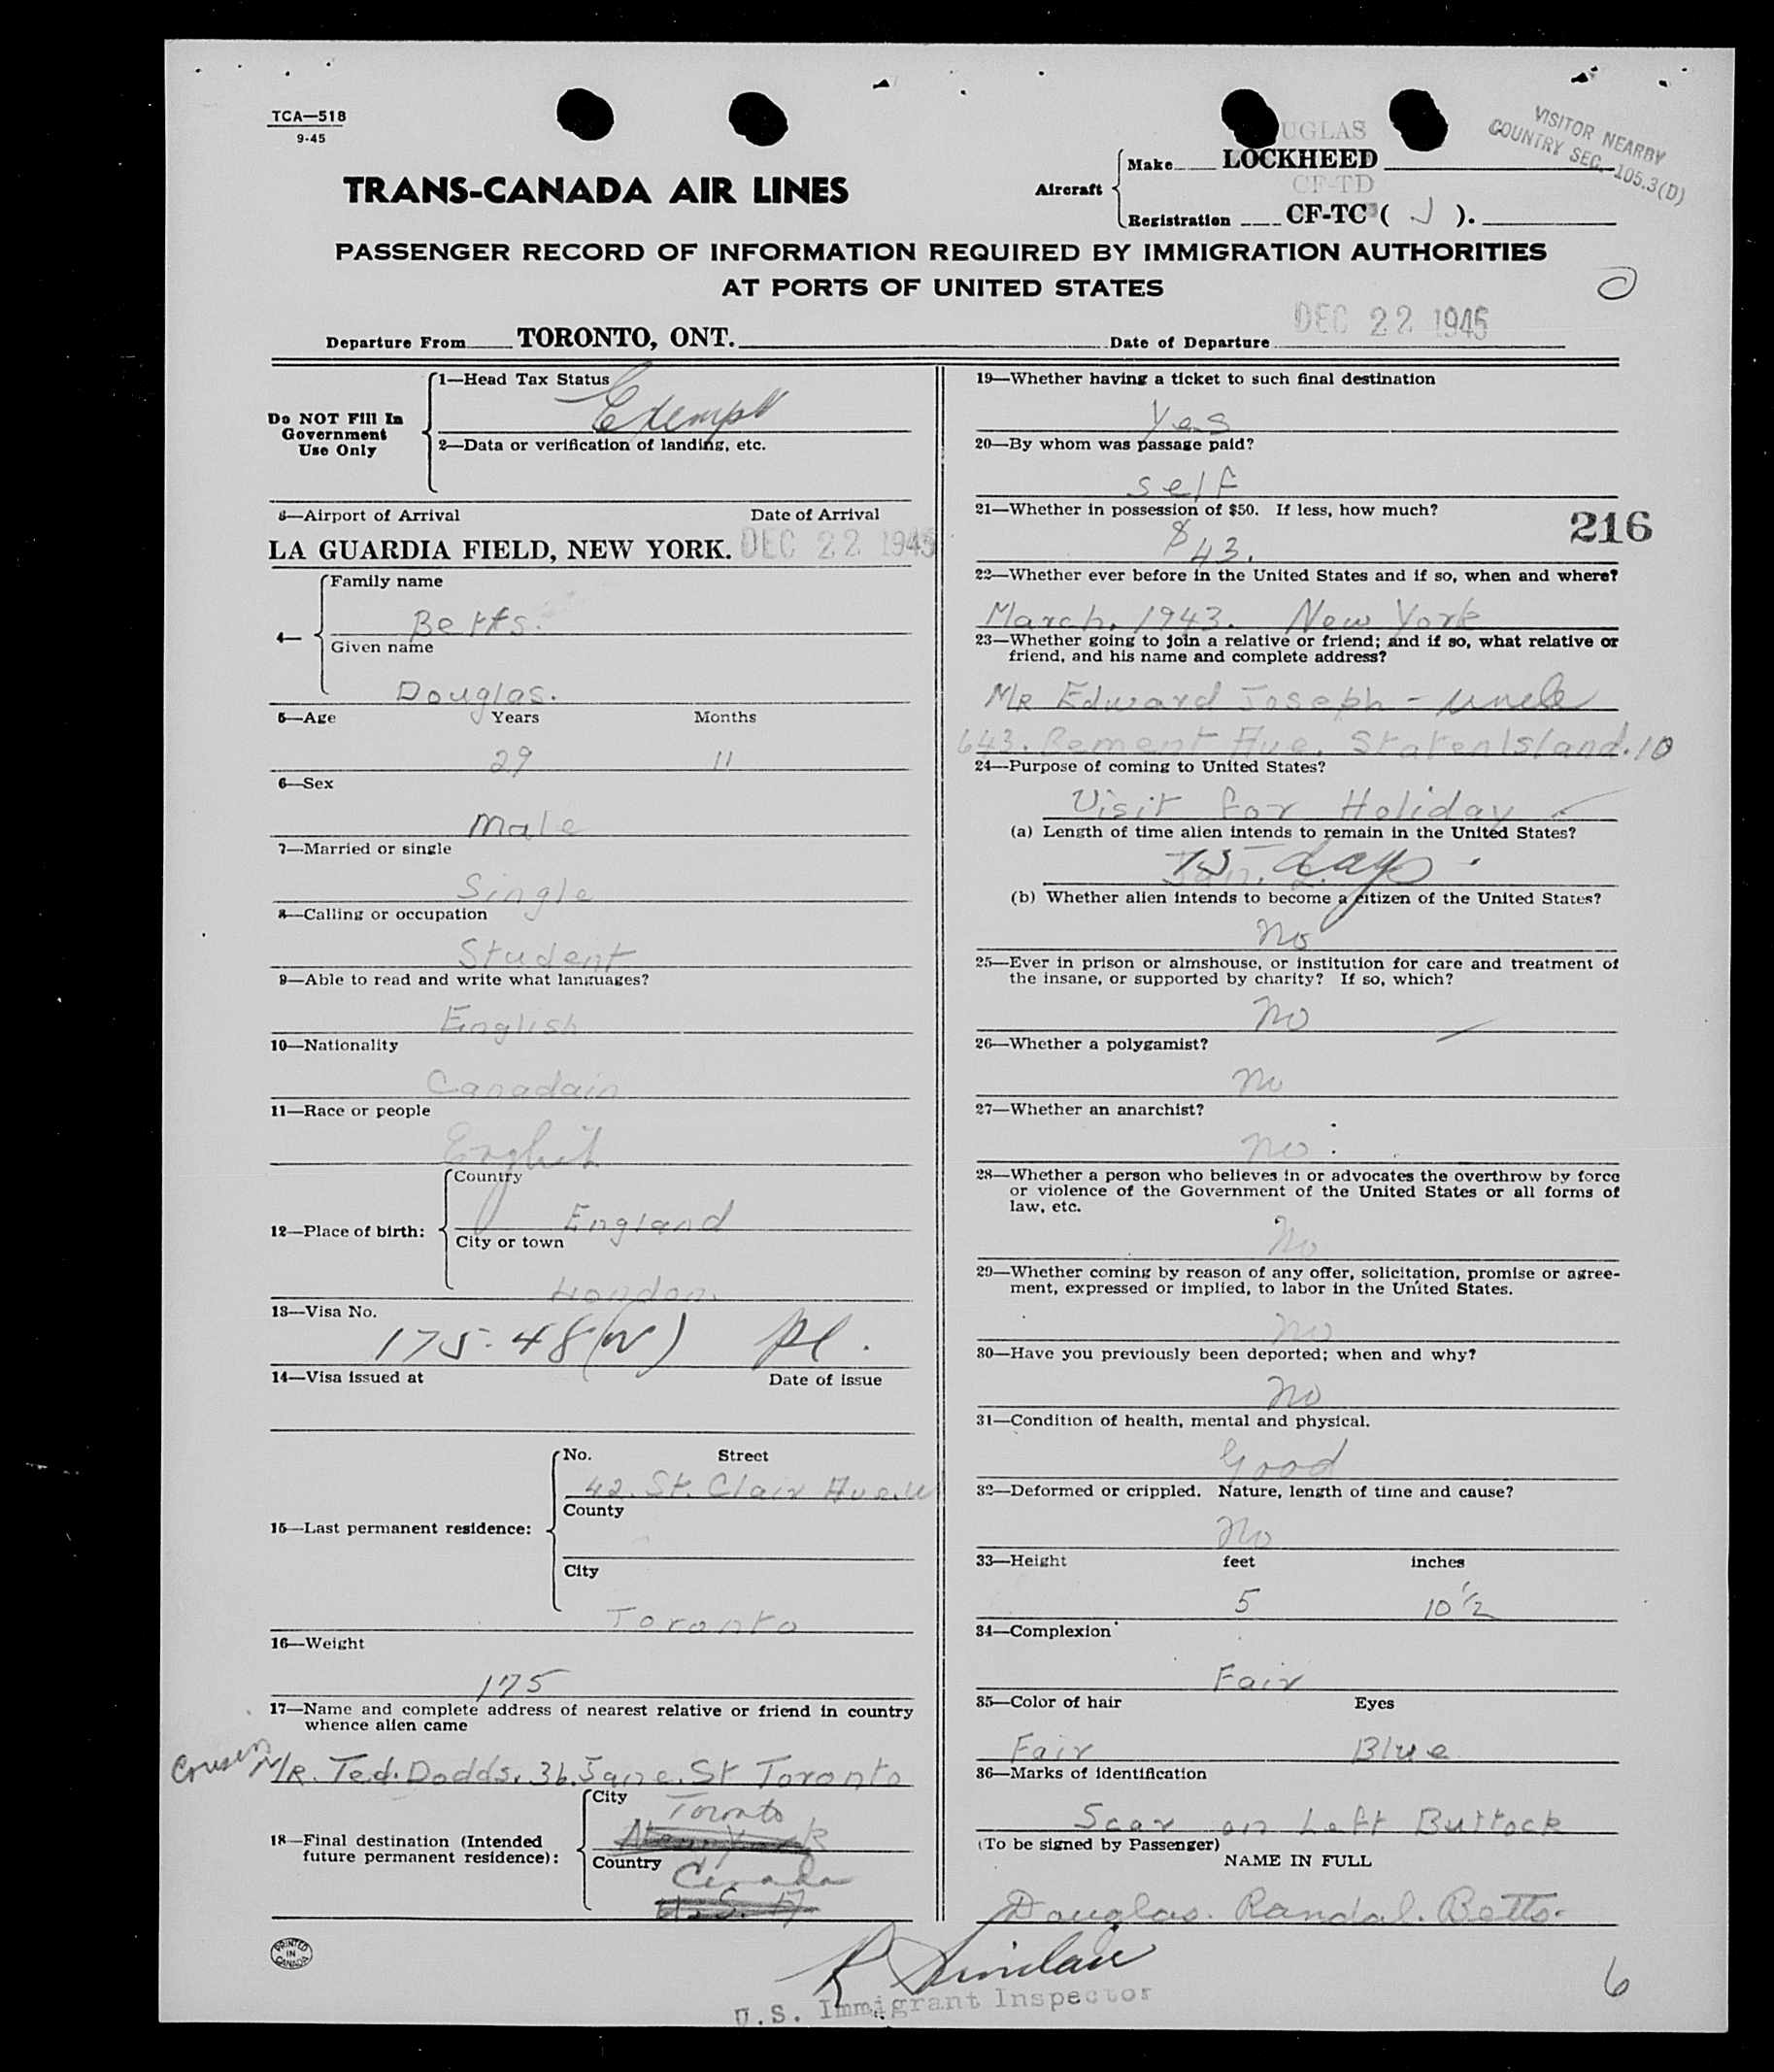 TCA—518
9-45
VISITOR NEARBY
COUNTRY SEC. 105.3(D)
UGLAS
Make LOCKHEED
TRANS-CANADA AIR LINES
Aircraft
CF-TD
Registration CF-TC ( J ).
PASSENGER RECORD OF INFORMATION REQUIRED BY IMMIGRATION AUTHORITIES
AT PORTS OF UNITED STATES
Departure From TORONTO, ONT. Date of Departure DEC 22 1945
Do NOT Fill In
Government
Use Only
1—Head Tax Status
Exempt
2—Data or verification of landing, etc.
3—Airport of Arrival Date of Arrival
LA GUARDIA FIELD, NEW YORK. DEC 22 1945
4—
Family name
Betts.
Given name
Douglas.
5—Age Years Months
29 11
6—Sex
Male
7—Married or single
Single
8—Calling or occupation
Student
9—Able to read and write what languages?
English
10—Nationality
Canadain
11—Race or people
English
12—Place of birth:
Country
England
City or town
London.
13—Visa No.
175-48(W)
14—Visa issued at Date of issue
15—Last permanent residence:
No. Street
42. St. Clair Ave. W
County
City
Toronto
16—Weight
175
17—Name and complete address of nearest relative or friend in country
whence alien came
Cousin Mr. Ted. Dodds. 36. Jane. St Toronto
18—Final destination (Intended
future permanent residence):
City
Toronto
New York
Country
Canada
U.S.A
19—Whether having a ticket to such final destination
Yes
20—By whom was passage paid?
Self
21—Whether in possession of $50. If less, how much?
$43.
216
22—Whether ever before in the United States and if so, when and where?
March, 1943. New York
23—Whether going to join a relative or friend; and if so, what relative or
friend, and his name and complete address?
Mr Edward Joseph - uncle
643. Bement Ave. Staten Island. 10
24—Purpose of coming to United States?
Visit for Holiday
(a) Length of time alien intends to remain in the United States?
15 days
(b) Whether alien intends to become a citizen of the United States?
No
25—Ever in prison or almshouse, or institution for care and treatment of
the insane, or supported by charity? If so, which?
No
26—Whether a polygamist?
No
27—Whether an anarchist?
No
28—Whether a person who believes in or advocates the overthrow by force
or violence of the Government of the United States or all forms of
law, etc.
No
29—Whether coming by reason of any offer, solicitation, promise or agree-
ment, expressed or implied, to labor in the United States.
No
30—Have you previously been deported; when and why?
No
31—Condition of health, mental and physical.
Good
32—Deformed or crippled. Nature, length of time and cause?
No
33—Height feet inches
5 10 1/2
34—Complexion
Fair
35—Color of hair Eyes
Fair Blue
36—Marks of identification
Scar on Left Buttock
(To be signed by Passenger)
NAME IN FULL
Douglas. Randal. Betts.
PRINTED
IN
CANADA
R Sinclair
U.S. Immigrant Inspector
6